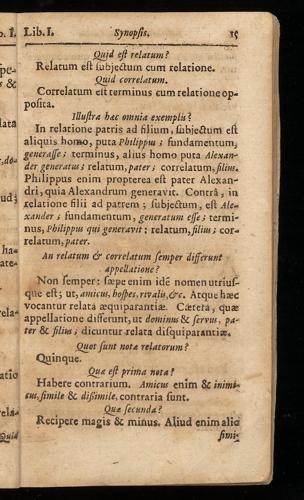 Lib. I. Synopsis. 15
Quid est relatum?
Relatum est subjectum cum relatione.
Quid correlatum.
Correlatum est terminus cum relatione op-
posita.
Illustra hæc omnia exemplis?
In relatione patris ad filium, subjectum est
aliquis homo, puta Philippus; fundamentum,
generasse; terminus, alius homo puta Alexan-
der generatus; relatum, pater; correlatum, filius.
Philippus enim propterea est pater Alexan-
dri, quia Alexandrum generavit. Contrà, in
relatione filii ad patrem; subjectum, est Ale-
xander; fundamentum, generatum esse; termi-
nus, Philippus qui generavit: relatum, filius; cor-
relatum, pater.
An relatum & correlatum semper differunt
appellatione?
Non semper: sæpe enim idē nomen utrius-
que est; ut, amicus, hospes, rivalis, &c. Atque hæc
vocantur relata æquiparantiæ. Cætera, quæ
appellatione differunt, ut dominus & servus, pa-
ter & filius; dicuntur relata disquiparantiæ.
Quot sunt notæ relatorum?
Quinque.
Quæ est prima nota?
Habere contrarium. Amicus enim & inimi-
cus, simile & dissimile, contraria sunt.
Quæ secunda?
Recipere magis & minus. Aliud enim alio
simi-